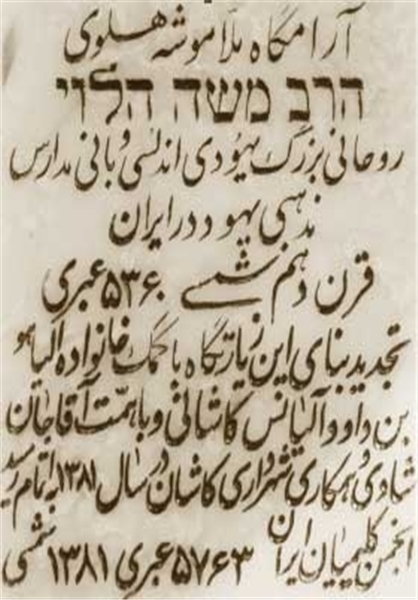 آرامگاه ملا موشه هلوی
הרב משה הלוי
روحانی بزرگ یهودی اندلسی و بانی مدارس
مذهبی یهود در ایران
قرن دهم شمسی ۵۳۶۰ عبری
تجدید بنای این زیارتگاه با کمک خانواده الیاهو
بن داوود آلیانس کاشانی و با همت آقاجان
شادی و همکاری شهرداری کاشان در سال ۱۳۸۱ به اتمام رسید
انجمن کلیمیان ایران ۵۷۶۳ عبری ۱۳۸۱ شمسی